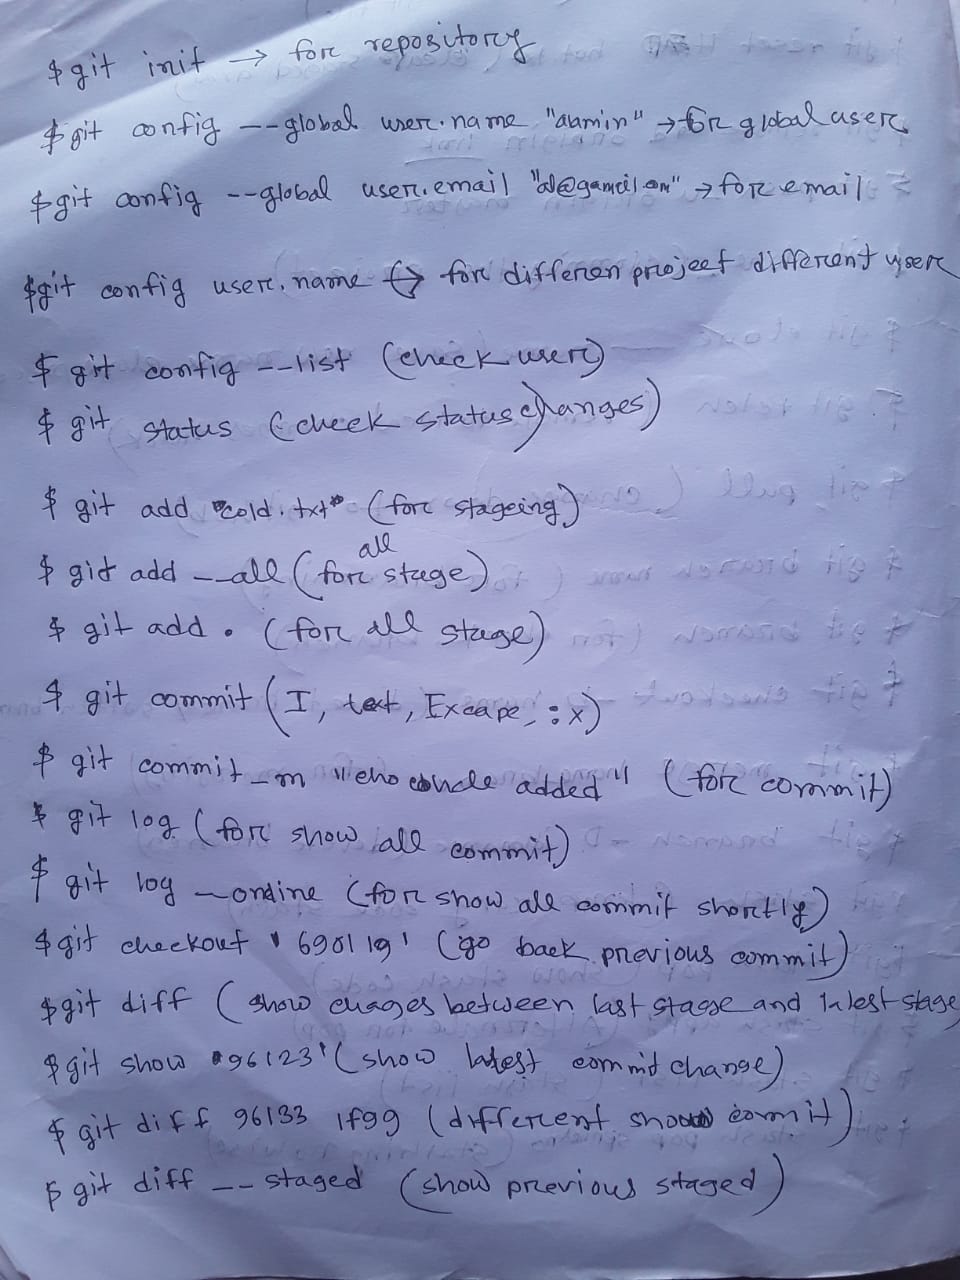 $ git init → for repository
$ git config --global user.name "alamin" → for global user
$ git config --global user.email "al@gameil.com" → for email
$ git config user.name → for differen project different user
$ git config --list (check user)
$ git status (check status changes)
$ git add "cold.txt" (for stageing)
$ git add --all (for all stage)
$ git add . (for all stage)
$ git commit (I, text, Excape, :x)
$ git commit -m "added" (for commit)
$ git log (for show all commit)
$ git log (for show all commit shortly)
$ git checkout '690119' (go back previous commit)
$ git diff (show chages between last stage and latest stage
$ git show '96123' (show latest commit change)
$ git diff 96133 1f99 (different show commit)
$ git diff --staged (show previous staged)